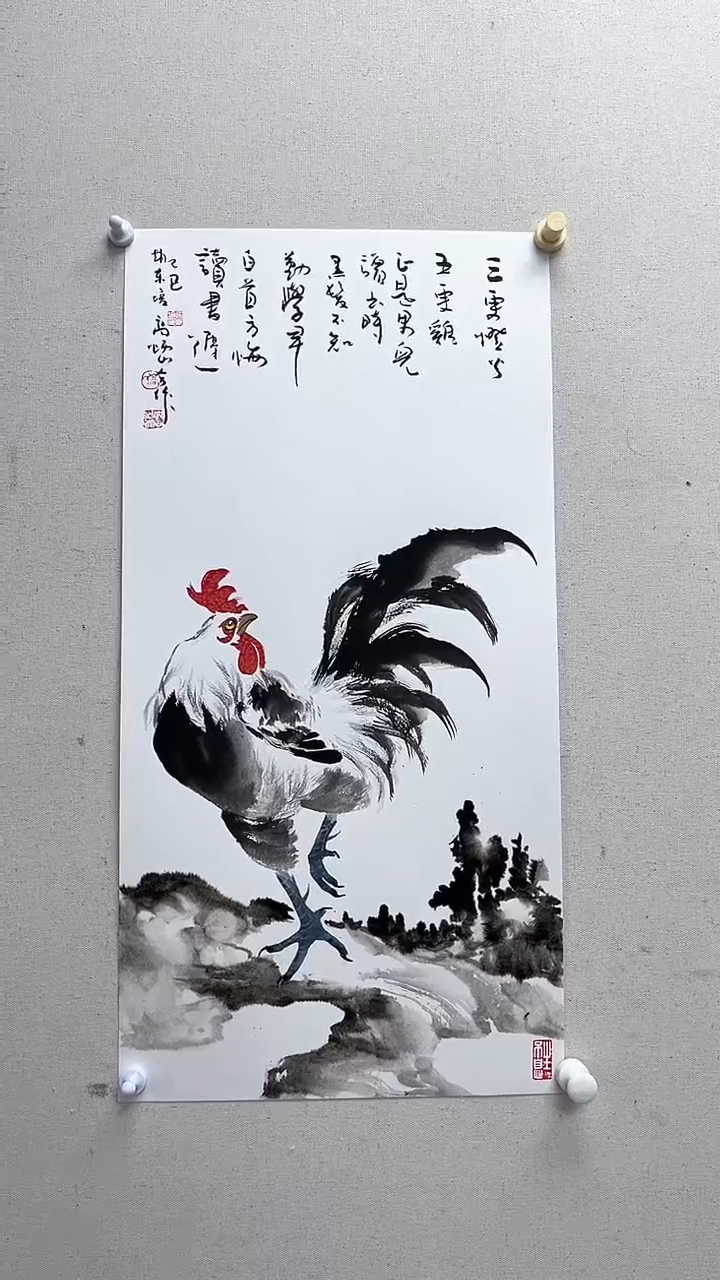 三更燈火
五更雞
正是男兒
讀書時
黑髮不知
勤學早
白首方悔
讀書遲
乙巳